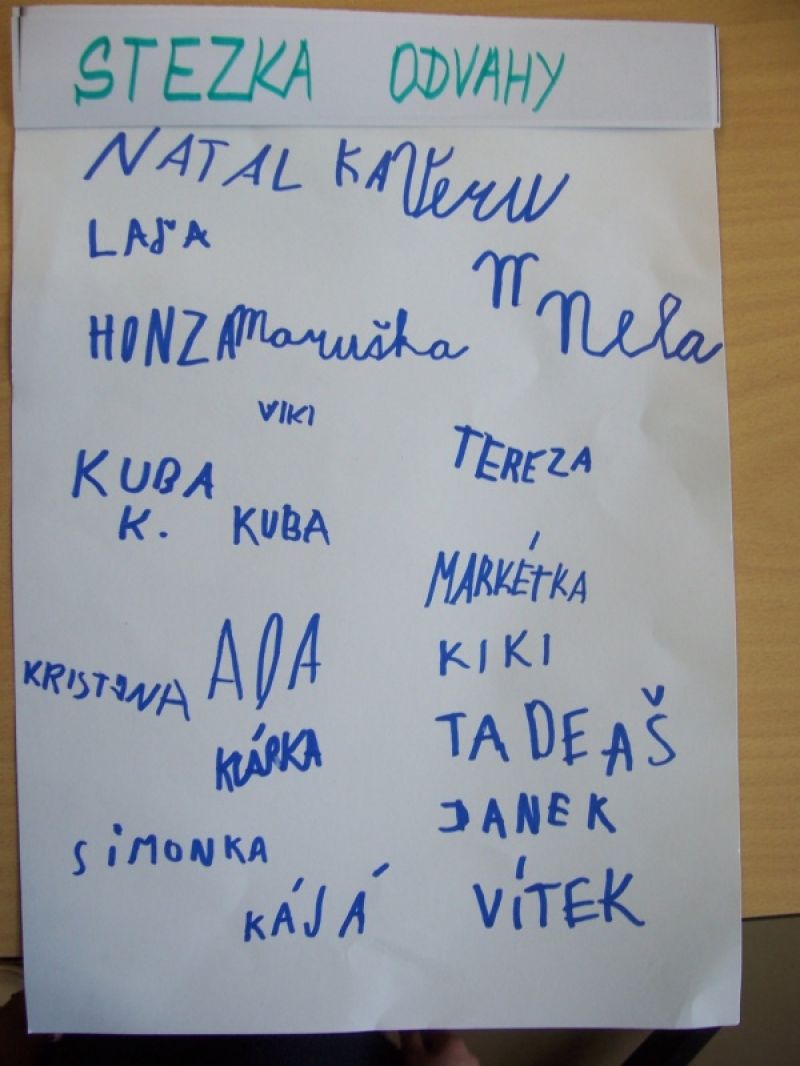 STEZKA ODVAHY
NATALKA Veru
LAĎA
N Nela
HONZA Maruška
VIKI
TEREZA
KUBA
K. KUBA
MARKÉTKA
ADA
KIKI
KRISTÝNA
TADEAŠ
KLÁRKA
JANEK
SIMONKA
KÁJÁ
VÍTEK